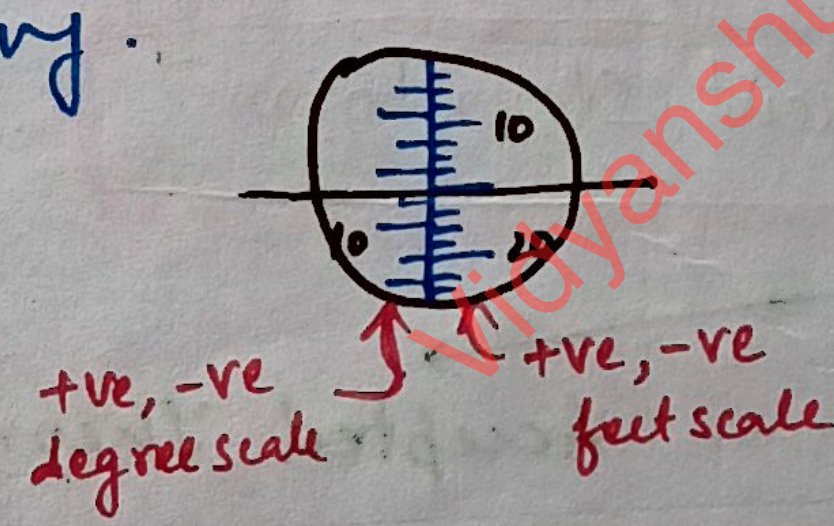 10
10
20
+ve, -ve
degree scale
+ve, -ve
feet scale
Vidyanshu